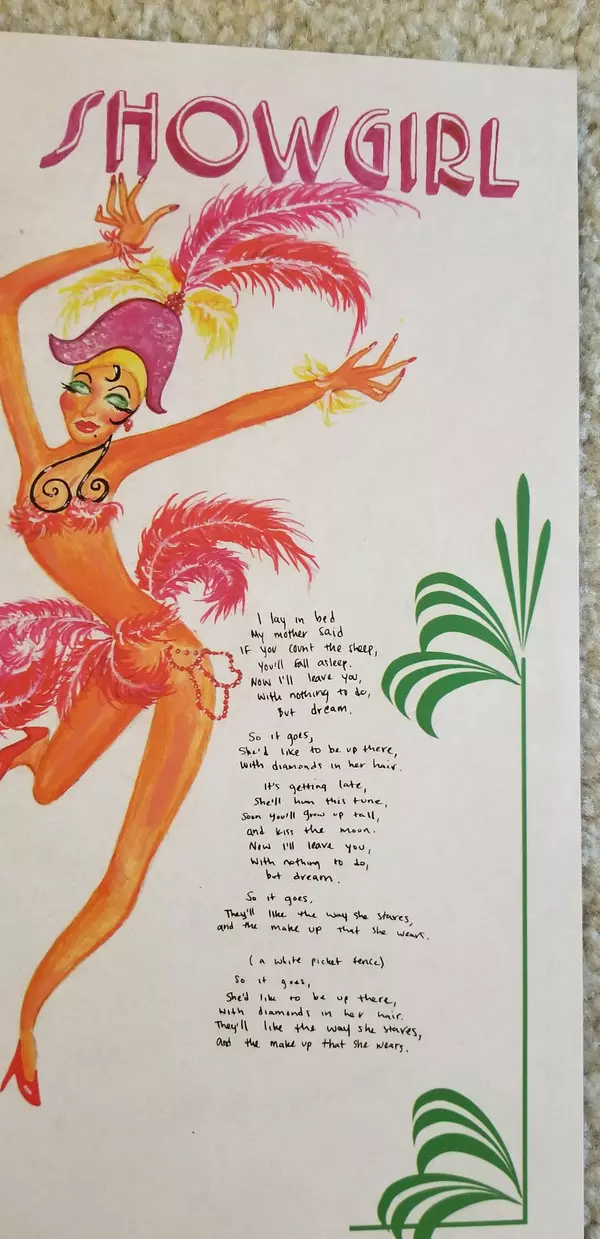 SHOWGIRL
I lay in bed
My mother said
IF you count the sheep,
You'll fall asleep.
Now I'll leave you,
with nothing to do,
But dream.
So it goes,
She'd like to be up there,
with diamonds in her hair.
It's getting late,
She'll hum this tune,
Soon you'll grow up tall,
and kiss the moon.
Now I'll leave you,
With nothing to do,
but dream.
So it goes,
They'll like the way she stares,
and the make up that she wears.
(a white picket fence)
So it goes,
She'd like to be up there,
with diamonds in her hair.
They'll like the way she stares,
and the make up that she wears.